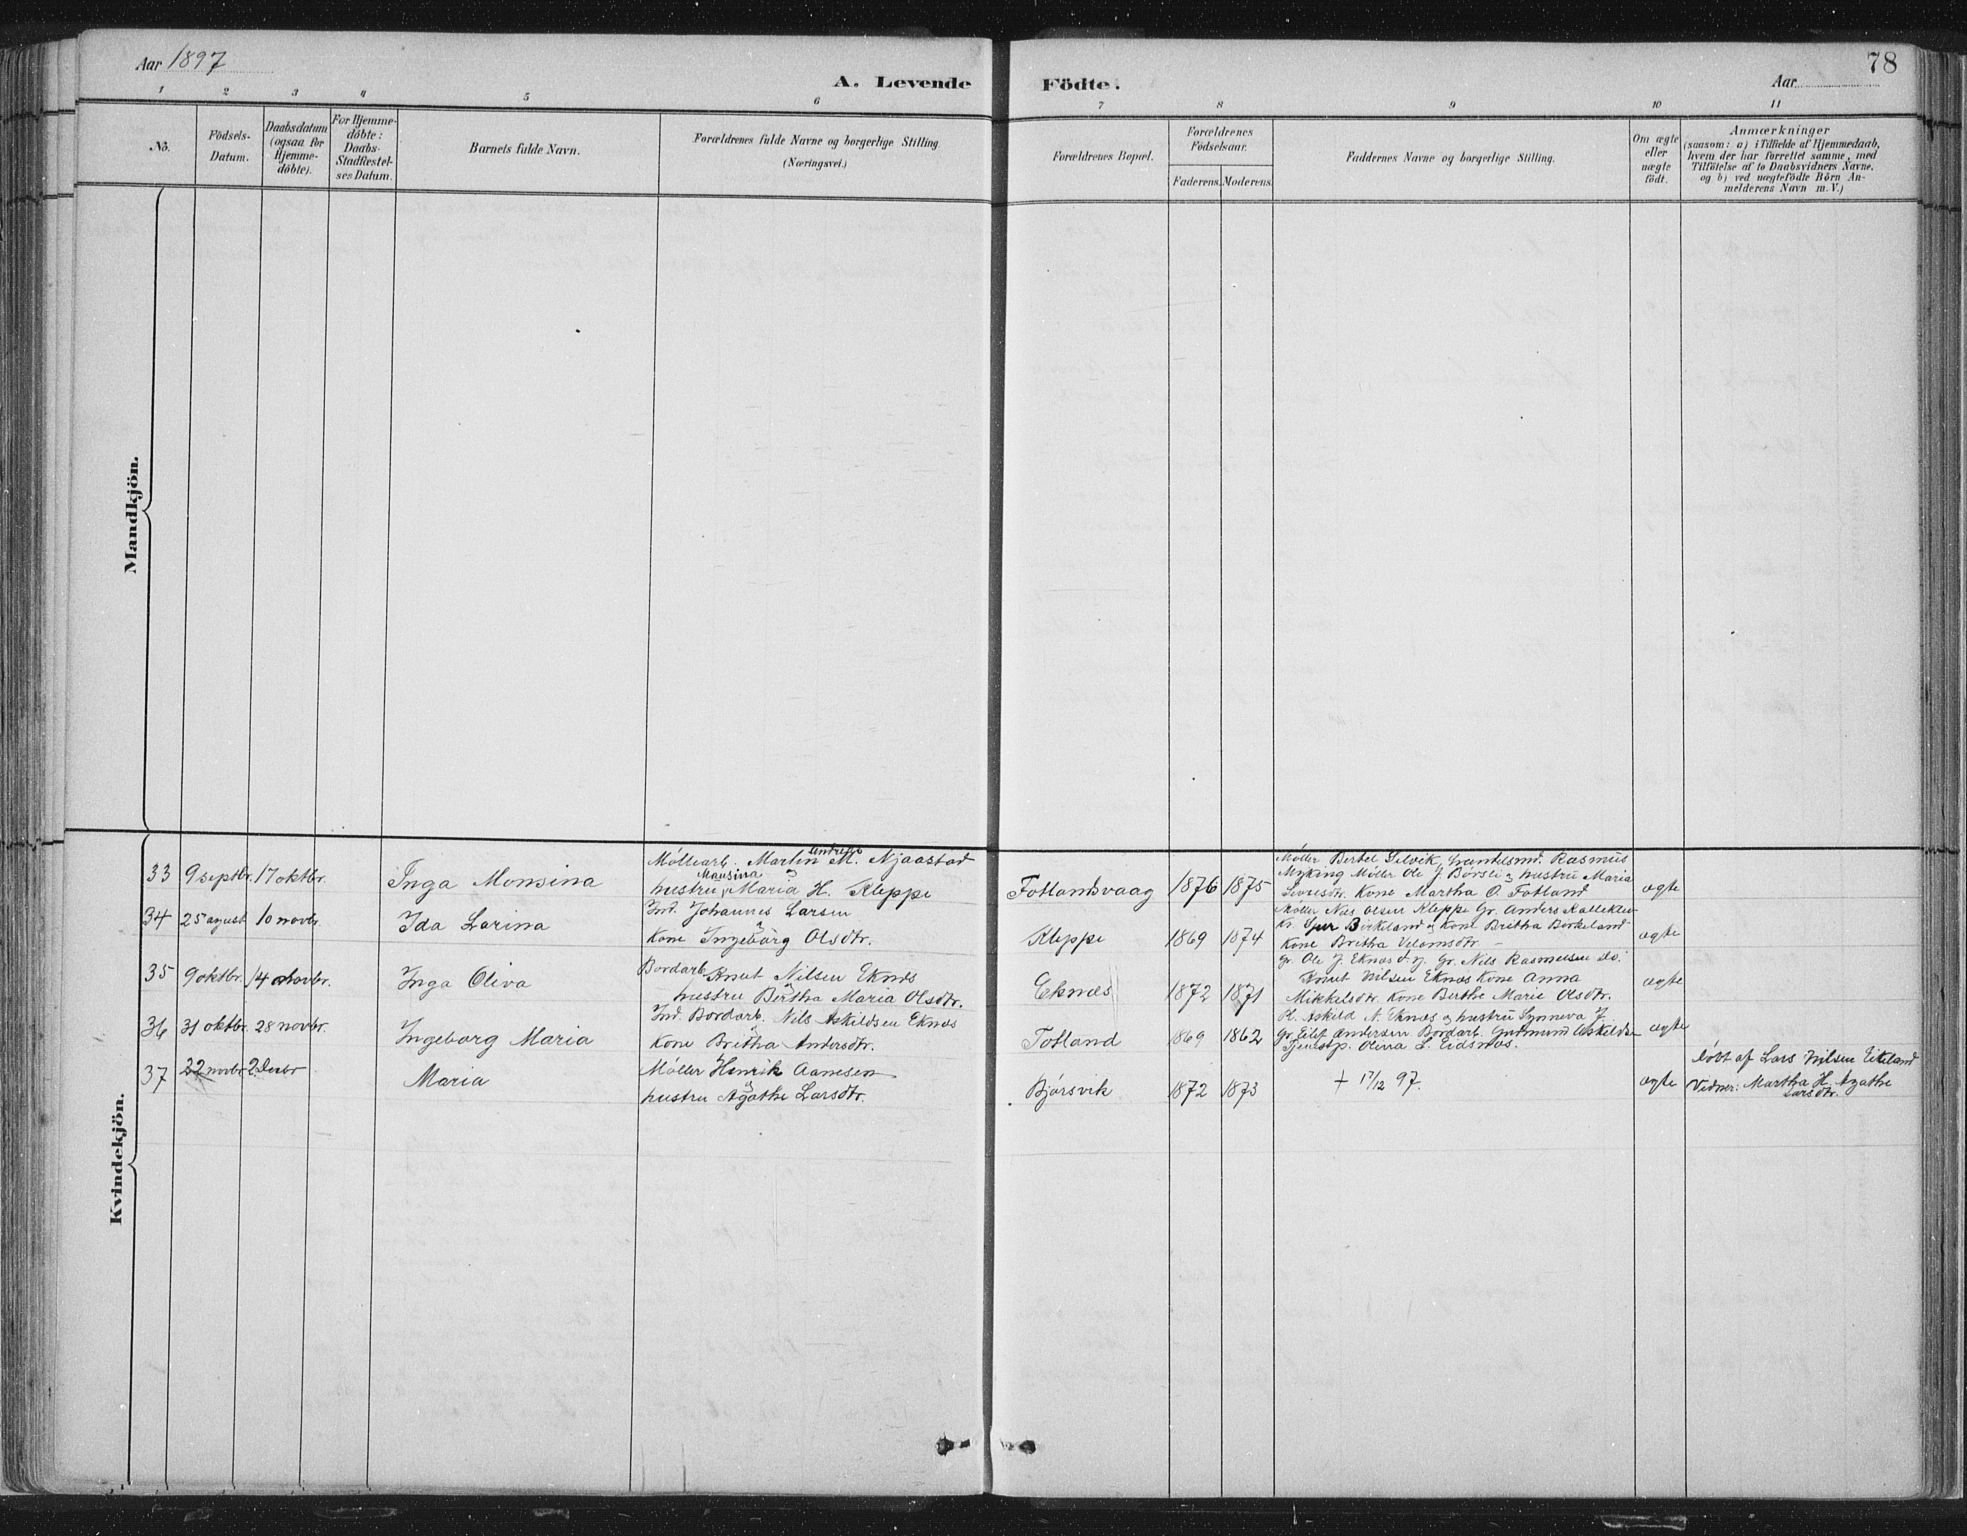 Aar 1897
A. Levende Födte.
Aar
78
1 2 3 4 5 6 7 8 9 10 11
No.
Födsels-
Datum.
Daabsdatum
(ogsaa for
Hjemme-
döbte).
For Hjemme-
döbte:
Daabs-
Stadfæstel-
ses Datum.
Barnets fulde Navn.
Forældrenes fulde Navne og borgerlige Stilling.
(Næringsvei.)
Forældrenes Bopæl.
Forældrenes
Födselsaar.
Faderens. Moderens.
Faddernes Navne og borgerlige Stilling.
Om ægte
eller
uægte
födt.
Anmærkninger
(saasom: a) i Tilfælde af Hjemmedaab,
hvem der har forrettet samme, med
Tilföielse af to Daabsvidners Navne,
og b) ved uægtefödte Börn An-
melderens Navn m. V.)
Mandkjön.
Kvindekjön.
33 9 septbr. 17 oktbr. Inga Monsina
Møllearb. Martin Andreas M. Njaastad
og
hustru Monsina Maria H. Kleppe
Fotlandsvaag 1876 1875
Møller Bertel Selvik, Handelsmd. Rasmus
Myking Møller Ole J Børsli og hustru Maria
Kone Martha O. Fotland
ægte
34 25 august 10 novbr. Ida Larina
Ind. Johannes Larsen
og
Kone Ingeborg Olsdtr.
Kleppe 1869 1874
Møller Nils Olsen Kleppe Gr. Anders
Birkeland og Kone Britha Birkeland
Kone Britha
ægte
35 9 oktbr. 14 novbr. Inga Oliva
Bordarb. Knut Nilsen Eknæs
og
hustru Bertha Maria Olsdtr.
Eknæs 1872 1871
Gr. Ole J. Eknæs Gr. Nils Rasmussen do.
Knut Nilsen Eknæs Kone Anna
Mikkelsdtr. Kone Berthe Marie Olsdtr.
ægte
36 31 oktbr. 28 novbr. Ingeborg Maria
Ind. Bordarb. Nils Askildsen Eknæs
og
Kone Britha Andersdtr.
Fotland 1869 1862
Askild N. Eknæs og hustru Synneva J.
Gr. Eilef Andersen Bordarb. Gudmund Askildsen
Tjenestep. Olina L. Eidsnæs.
ægte
37 22 novbr. 2 Decbr Maria
Møller Henrik Aamesen
og
hustru Agathe Larsdtr.
Bjørsvik 1872 1873
+ 17/12 97.
ægte
Døbt af Lars Nilsen Eikeland
Vidner: Martha H. Agathe
Larsdtr.